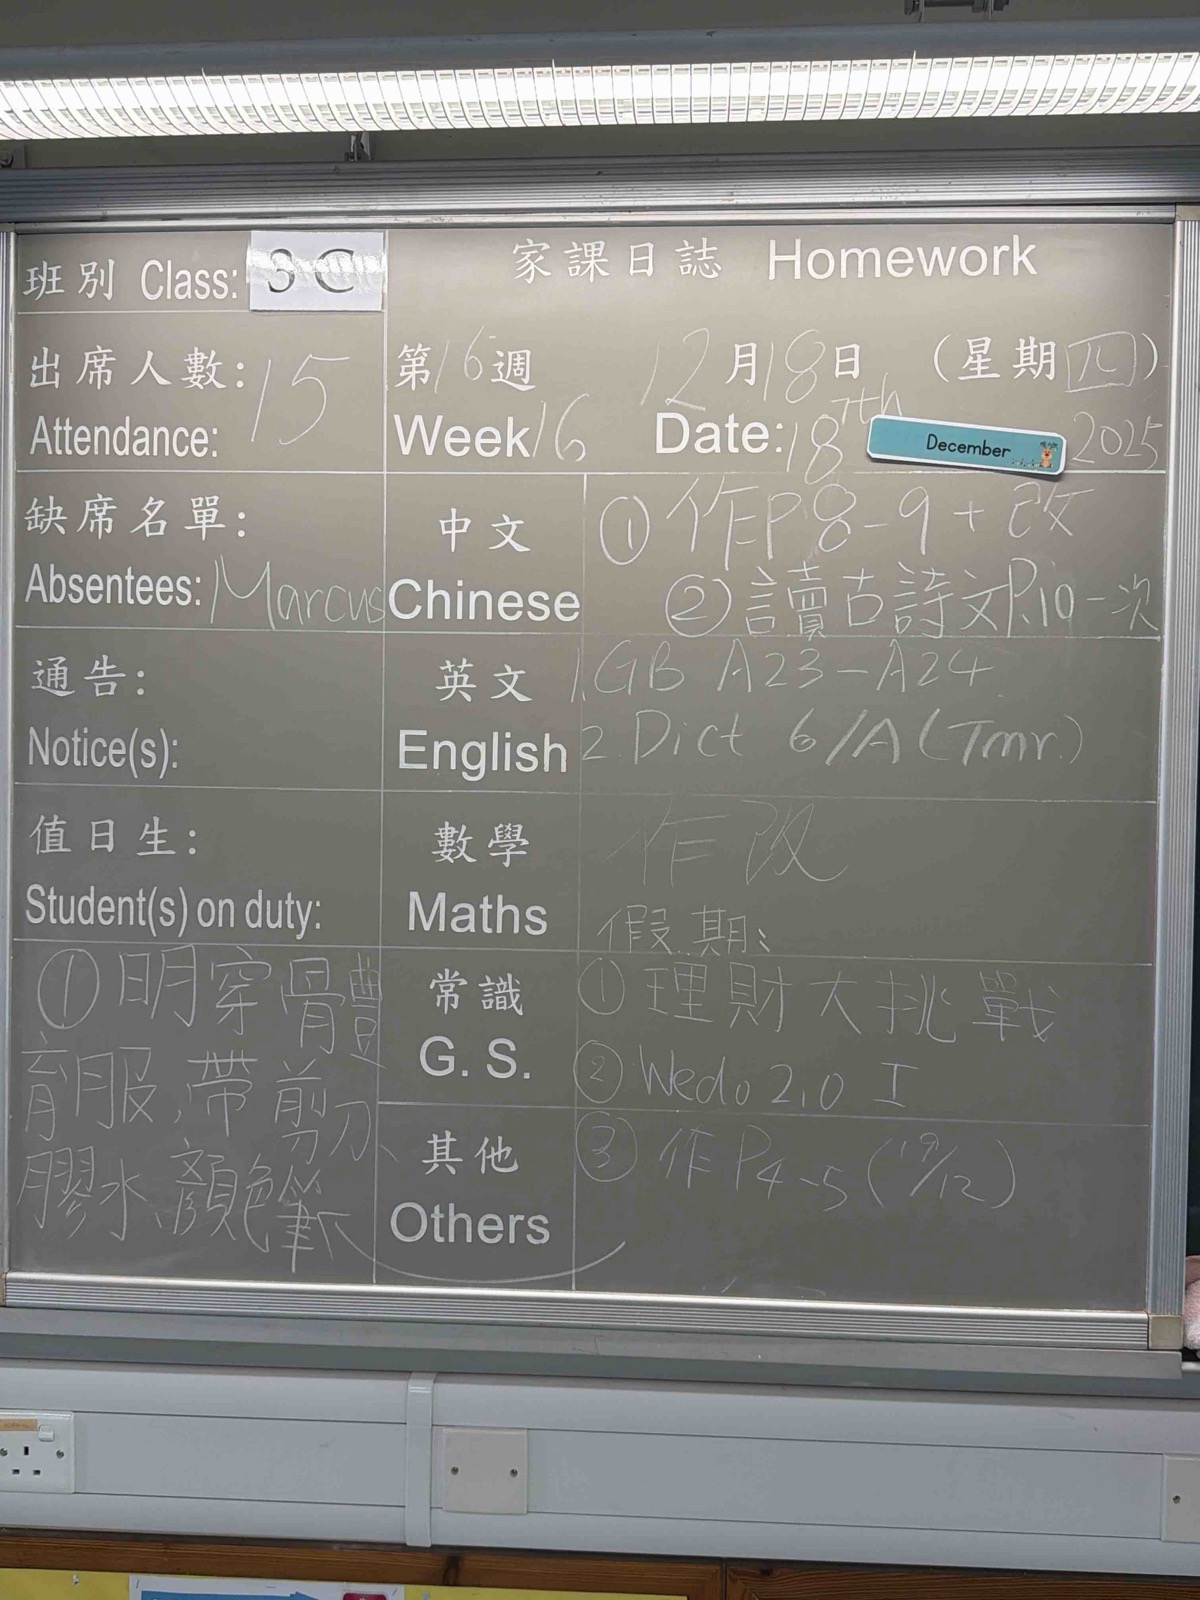 班別 Class: 3C
家課日誌 Homework
出席人數: 15
Attendance:
第16週 12月18日 (星期四)
Week 16 Date: 18th December 2025
缺席名單:
Absentees: Marcus
中文
Chinese
① 作P8-9+改
② 讀古詩文P.10一次
通告:
Notice(s):
英文
English
1. GB A23-A24
2. Dict 6/A (Tmr.)
值日生:
Student(s) on duty:
數學
Maths
作改
假期:
常識
G. S.
① 理財大挑戰
② Wedo 2.0 I
其他
Others
③ 作P4-5 (19/12)
① 明穿體
育服,帶剪刀、
膠水、顏色筆